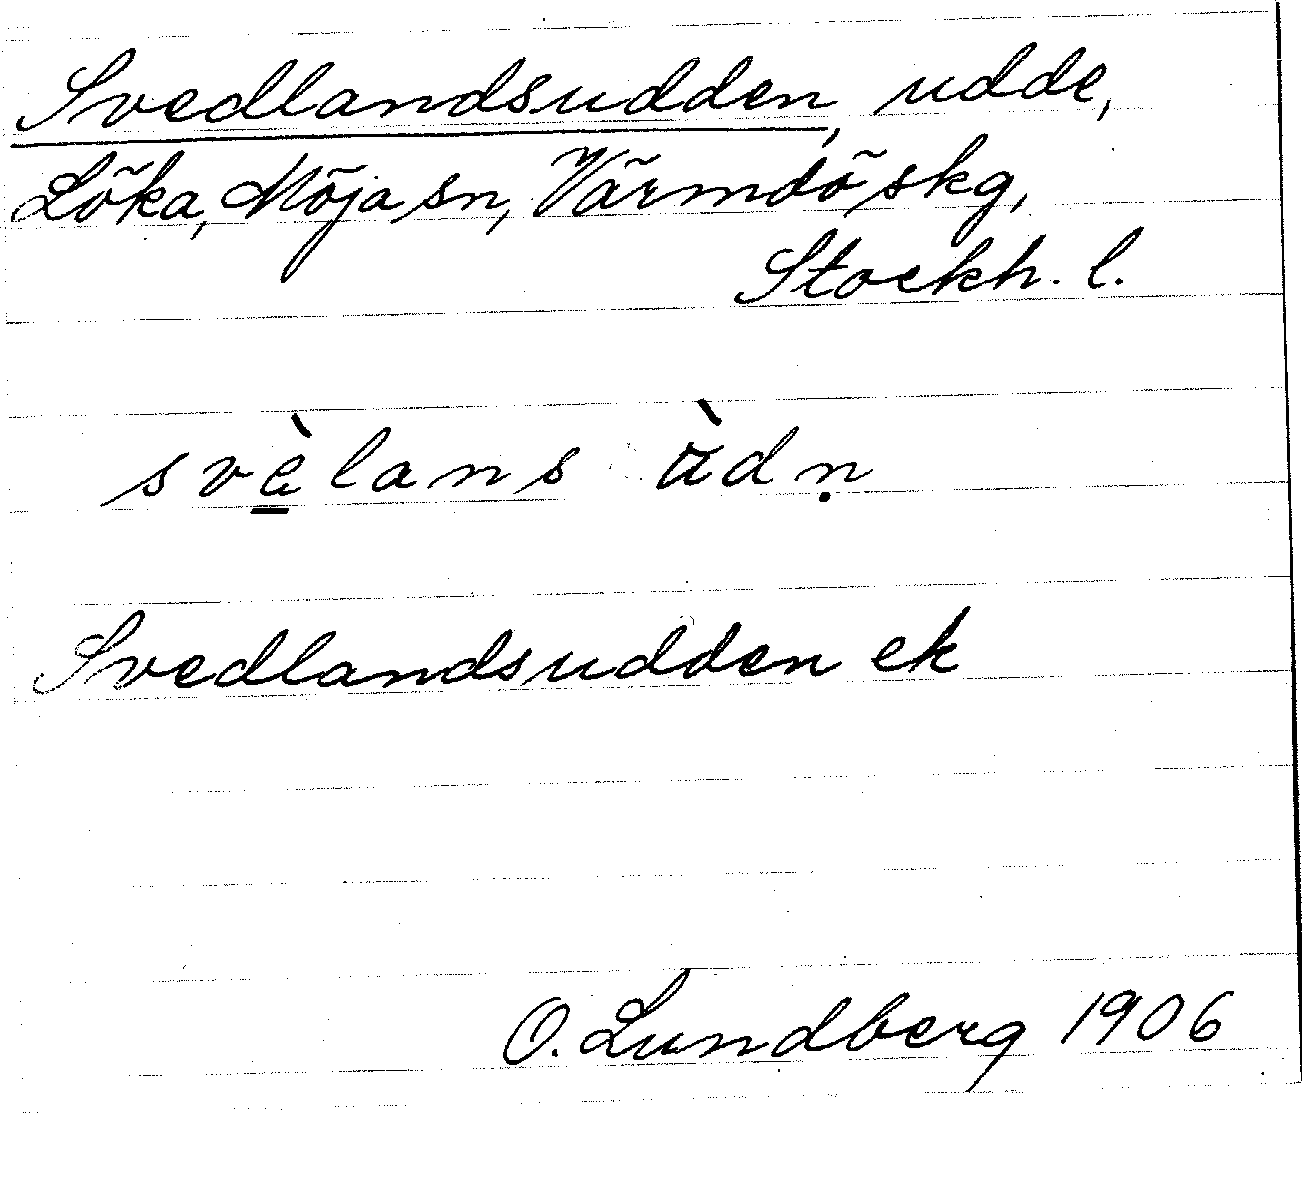 Svedlandsudden, udde,
Löka, Möja sn, Värmdö skg,
Stockh. l.
svè̱lans ùdṇ
Svedlandsudden ek
O. Lundberg 1906